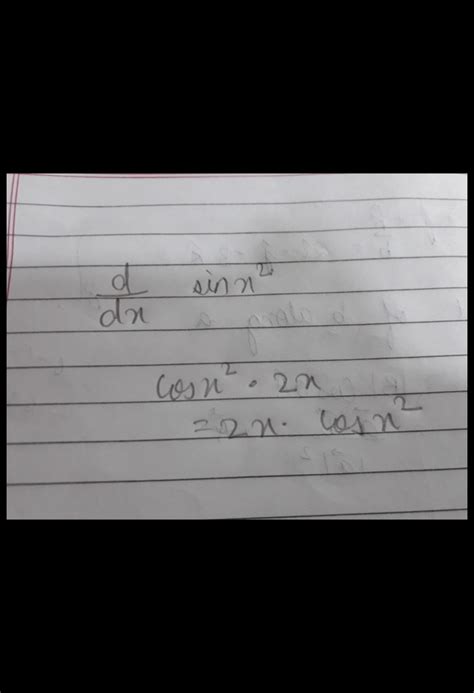 d/dx sinx²
cosx² · 2x
= 2x · cosx²